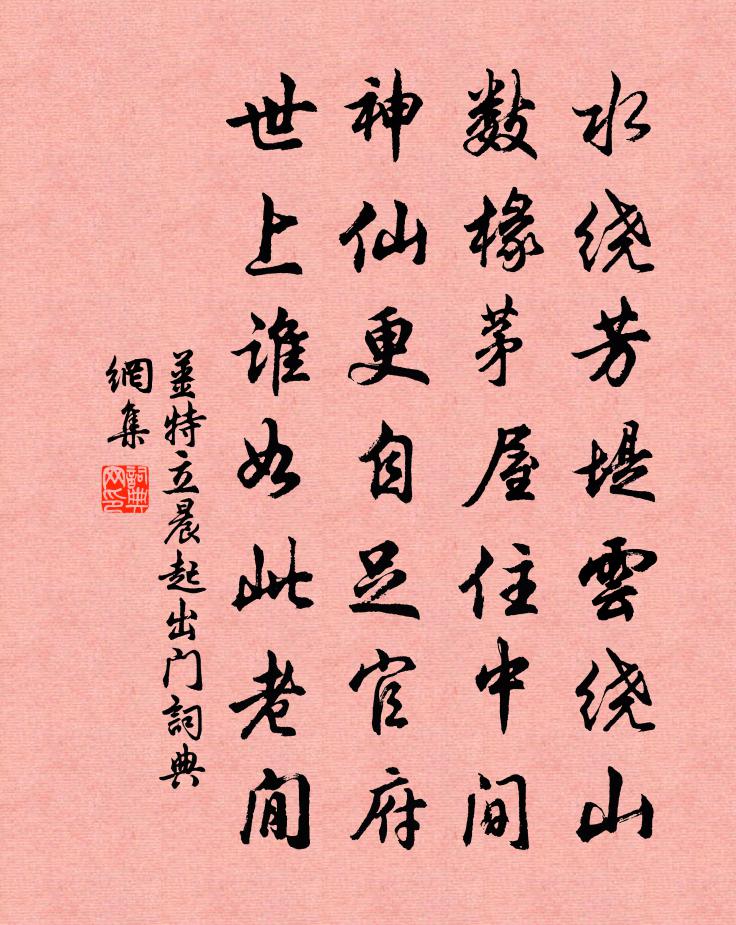 水绕芳堤雲绕山
数椽茅屋住中间
神仙更自足官府
世上谁如此老閒
薑特立晨起出门詞典
網集
詞典
网印